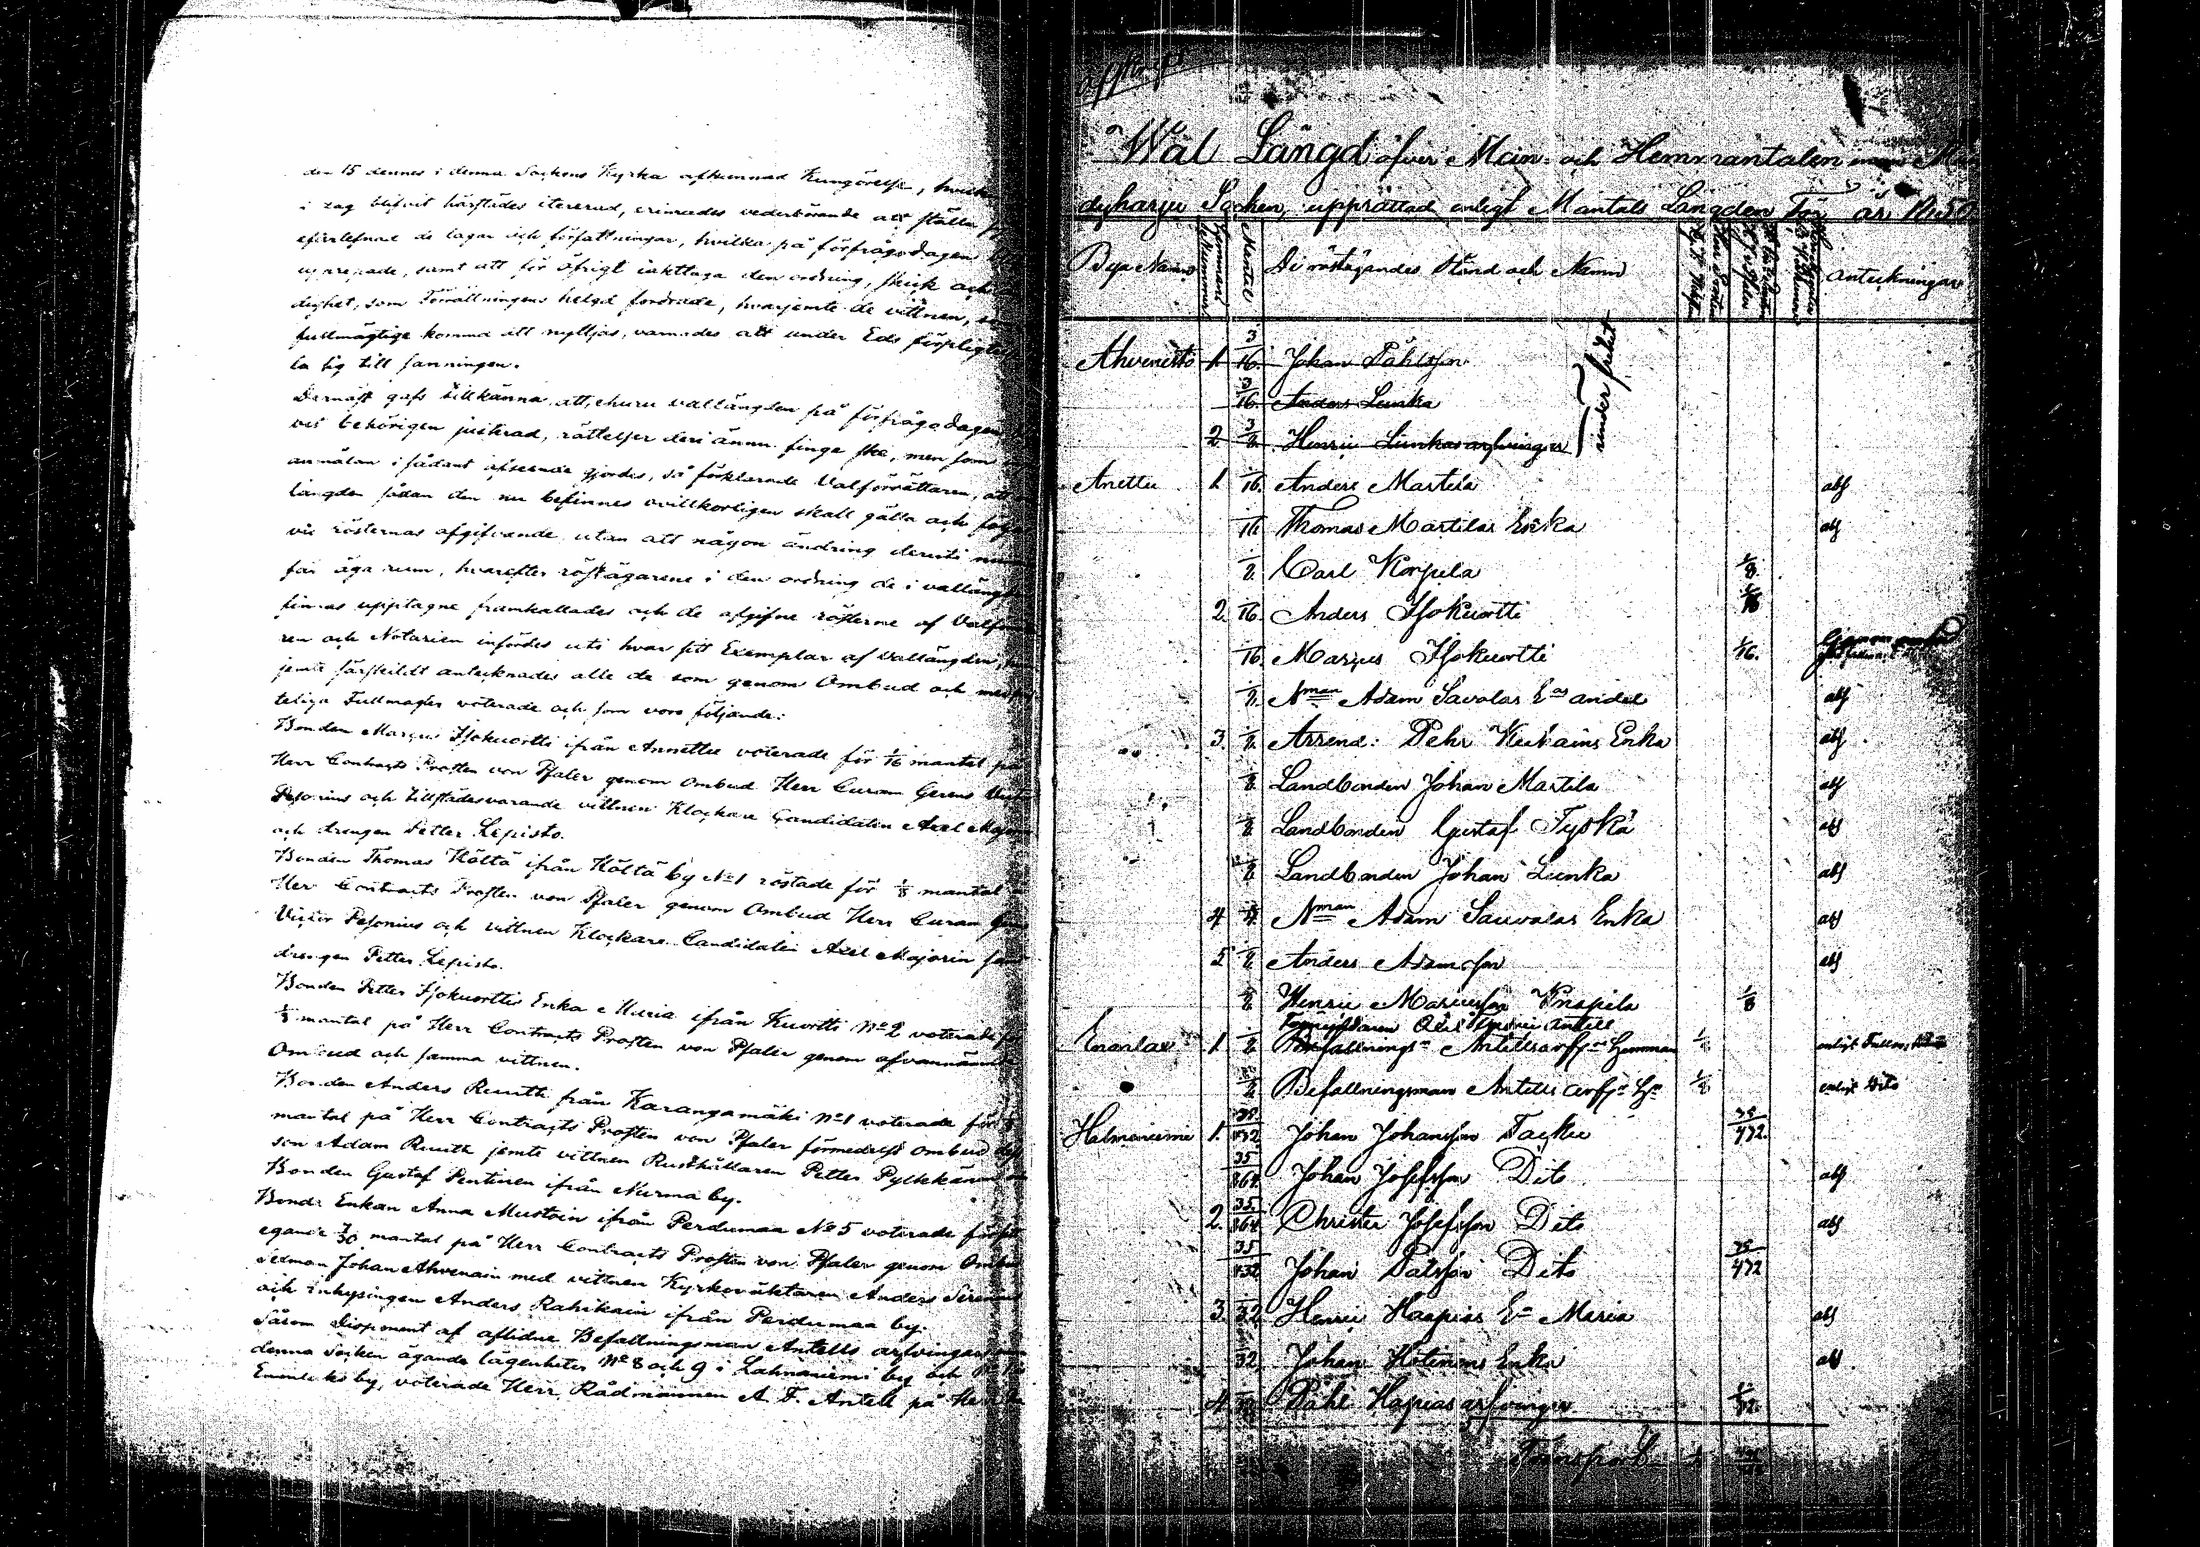 den 15 dennes i denna Sockens Kyrka afkunnad Kungörelse,
i dag blifvit härstädes itererad, erinrades vederbörande att ställa
efterlefnad de lagar och författningar, hvilka på förfrågodagen
upprepade, samt att för öfrigt iakttaga den ordning, skick och
dighet, som Förrättningens helgd fordrade, hvarjemte de vittnen,
fullmägtige komma att nyttjas, varnades att under Eds förpligtelse
la sig till sanningen.
Dernäst gafs tillkänna, att, ehuru vallängden på förfrågodagen
vit behörigen justerad, rättelser deri ännu finge ske, men som
anmälan i sådant afseende gjordes, så förklarade Valförrättaren, att
längden sådan den nu befinnes ovillkorligen skall gälla och följas
vid rösternas afgifvande utan att någon ändring deruti
får äga rum, hvarefter röstägarene i den ordning de i vallängden
finnas upptagne framkallades och de afgifne rösterne af Valförrätta
ren och Notarien infördes uti hvar sitt Exemplar af Vallängden,
jemte särskildt antecknades alle de som genom Ombud och med
teliga Fullmagter voterade och som voro följande:
Bonden Marcus Isokuortti ifrån Annettu voterade för 1/16 mantal på
Herr Contracts Prosten von Pfaler genom Ombud Herr Curam Gerens Victor
Pesonius och tillstädesvarande vittnen Klockare Candidaten Axel Majorin
och drengen Petter Lepisto.
Bonden Thomas Hölttä ifrån Hölttä by No 1 röstade för 1/8 mantal
Herr Contracts Prosten von Pfaler genom Ombud Herr Curam
Victor Pesonius och vittnen Klockare Candidaten Axel Majorin
drengen Petter Lepisto.
Bonden Petter Isokuorttis Enka Maria ifrån Kuortti No 2 voterade för
1/8 mantal på Herr Contracts Prosten von Pfaler genom ofvannämnde
Ombud och samma vittnen.
Bonden Anders Ruuth från Karangamäki No 1 voterade för
mantal på Herr Contracts Prosten von Pfaler förmedelst Ombud
son Adam Ruuth jemte vittnen Rusthållaren Petter Pylkkänen
Bonden Gustaf Pentinen ifrån Nurma by.
Bonde Enkan Anna Mustoin ifrån Pertunmaa No 5 voterade
egande 7/30 mantal på Herr Contracts Prosten von Pfaler genom Ombud
Sexman Johan Ahvenain med vittnen Kyrkovaktaren Anders
och inhysingen Anders Rahikain ifrån Perdumaa by.
Såsom Disponent af aflidne Befallningsman Antells arfvingars
denna Socken ägande lägenheter No 8 och 9 i Lahnaniemi by och
Enonlaks by, voterade Herr Rådmannen A. F. Antell på Herr
afskrift
Wal Längd öfver Man- och Hemmantalen
dyharju Socken, upprättad enligt Mantals Längden För år 1850.
Bya Namn Hemmans Nummer Mantal De röstägandes Stånd och Namn Anteckningar
Ahvenisto 1 3/16 Johan Påhlsson
3/16 Anders Lunka
2 3/8 Henric Lunkas arfvingar
under fäket
Anettu 1 1/16 Anders Martila abs
1/16 Thomas Martilas Enka abs
1/8 Carl Korpela 1/8
2 1/16 Anders Isokuortti 1/16
1/16 Marcus Isokuortti 1/16.
1/8 Nman Adam Savolas Eas andel abs
3. 1/8 Arrend: Pehr Kukains Enka abs
1/8 Landbonden Johan Martila abs
1/8 Landbonden Gustaf Tyskä abs
1/8 Landbonden Johan Lunka abs
4 1/4 Nman Adam Sauvolas Enka abs
5 1/8 Anders Adamsson abs
1/8 Henric Marcusson Knapila 1/8
Enonlax 1 1/8 Befallningsm Antells arfgs Hemman 1/8 enligt Fullm.
1/8 Befallningsman Antells arfgs Hn 1/8 enligt Dito
Halmeniemi 1. 35/432 Johan Johansson Tacku 35/432.
35/864 Johan Josefsson Dito abs
2. 35/864 Christer Josefsson Dito abs
35/432 Johan Pålsson Dito 35/432
3. 1/32 Henric Haapias Ea Maria abs
1/32 Johan Hölinens Enka abs
4 1/32 Påhl Hapias arfvingar 1/32.
Transport